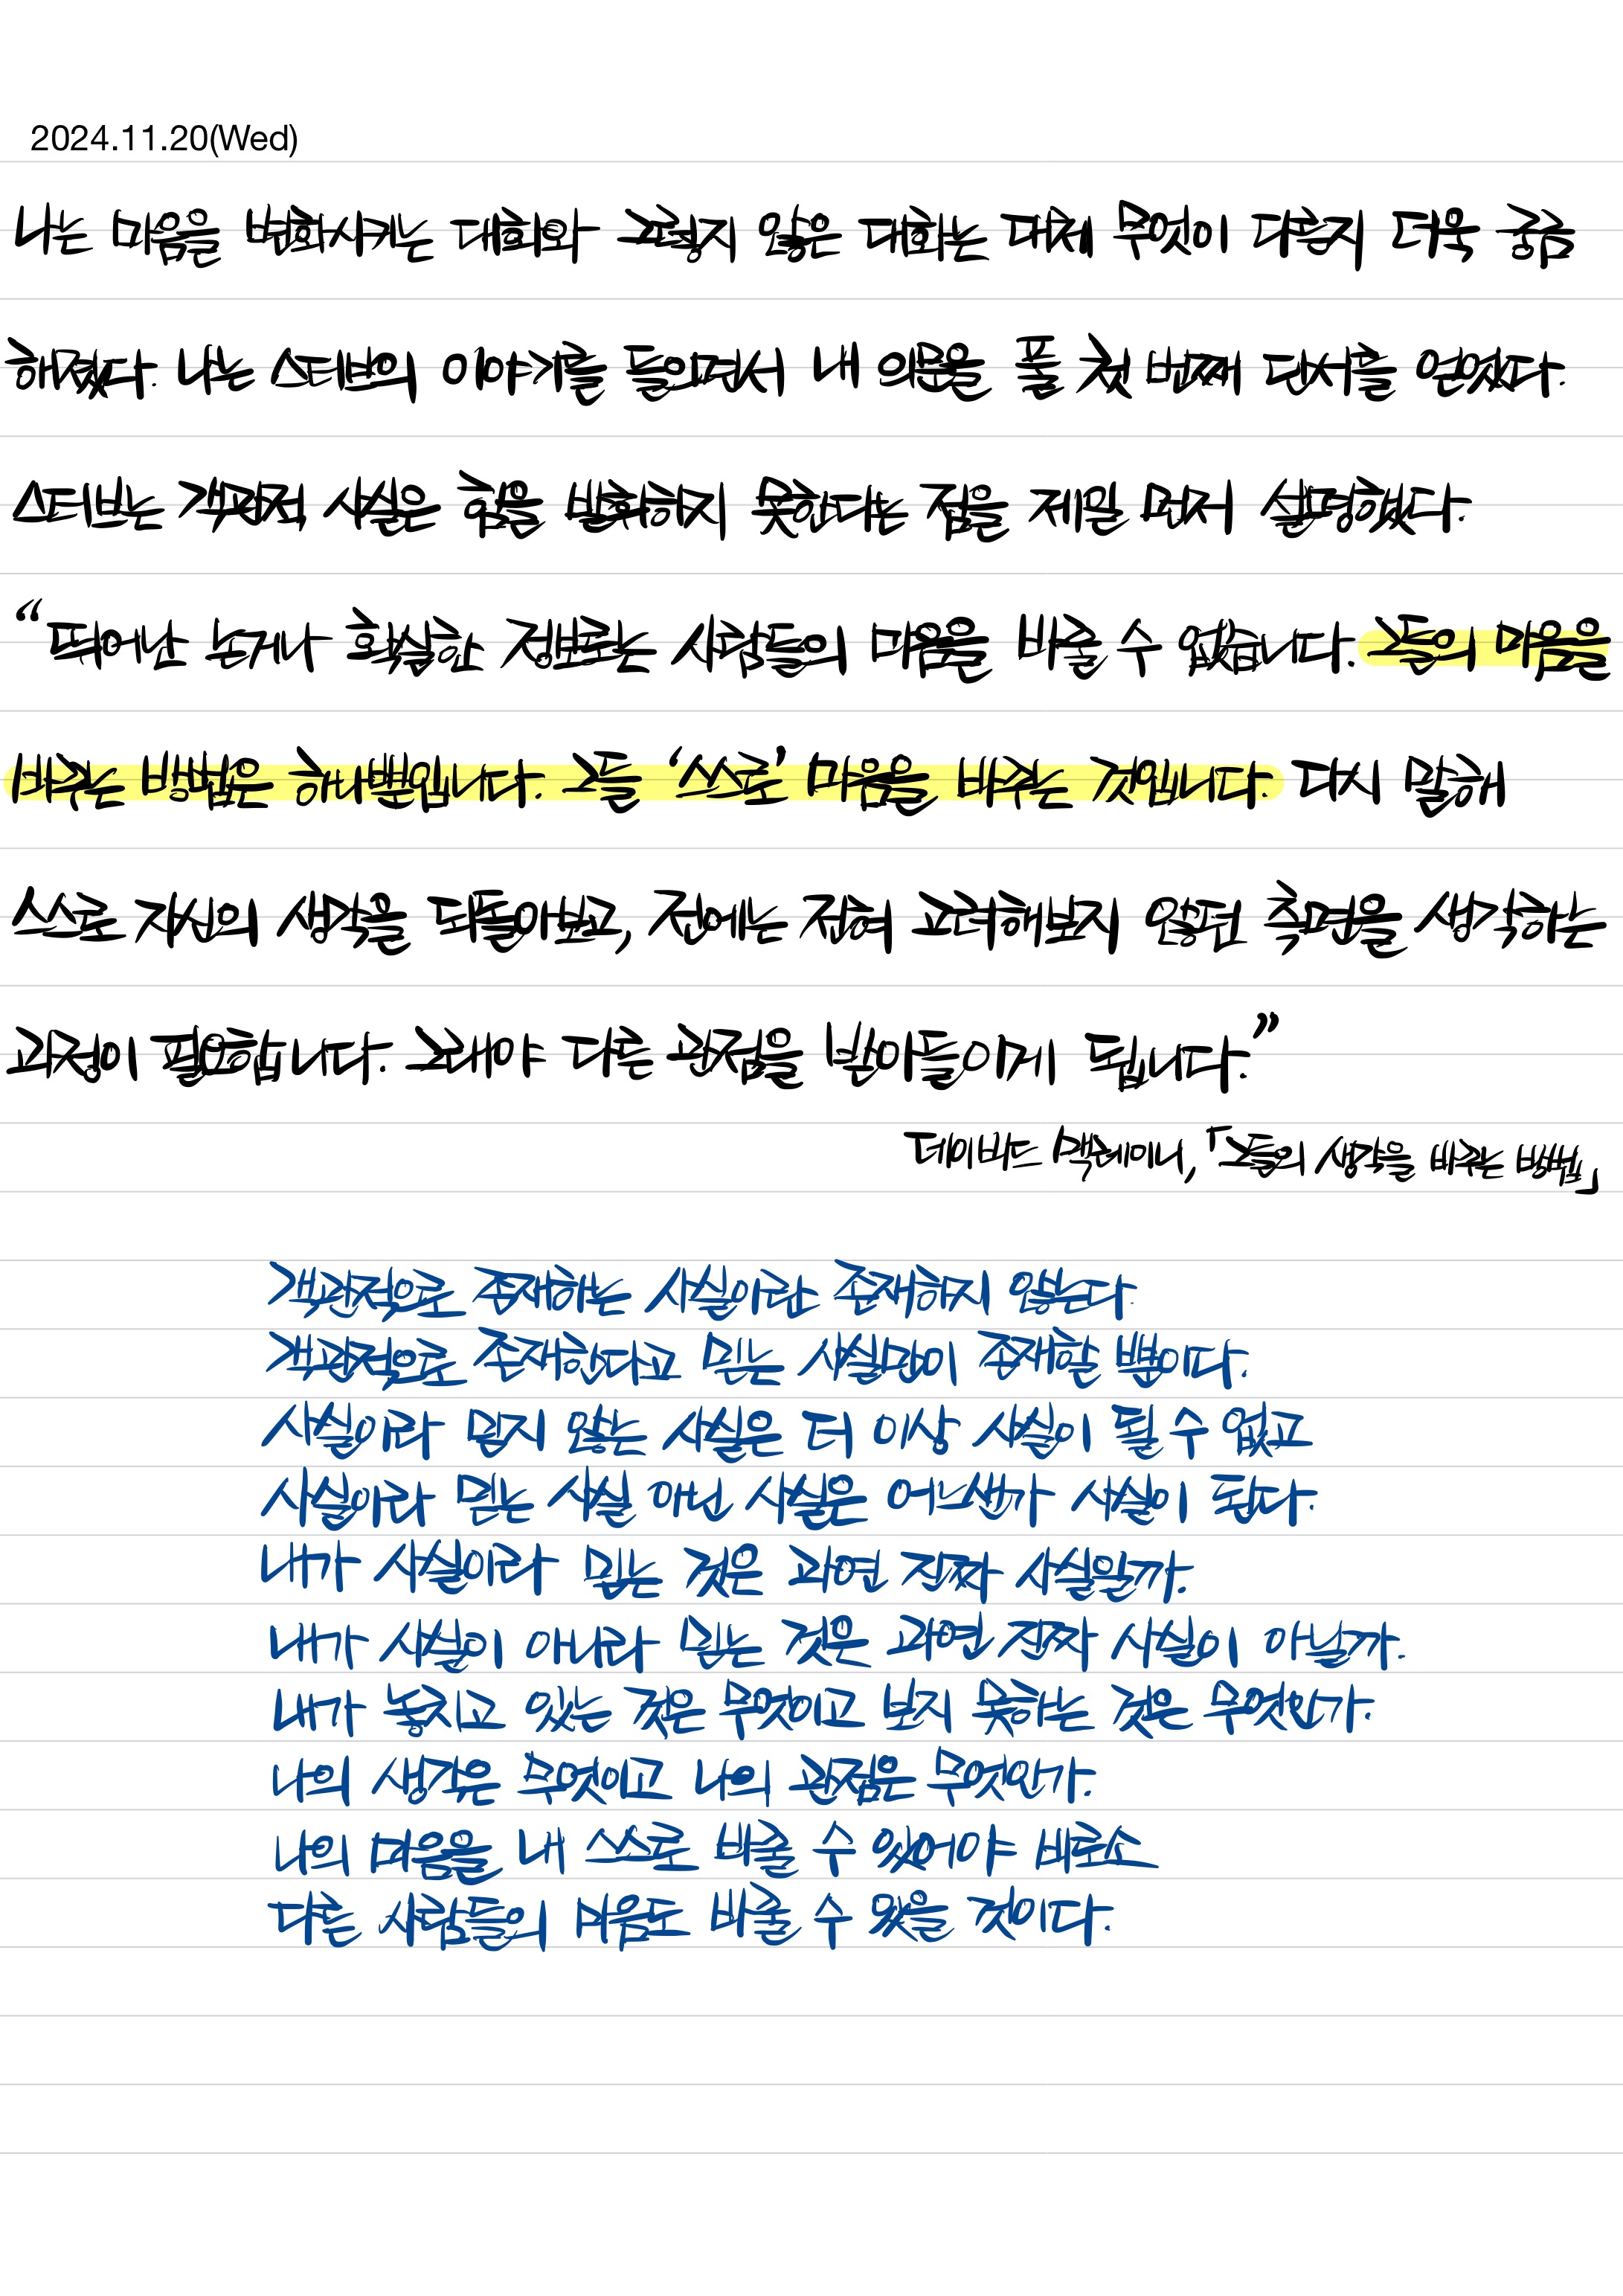 2024.11.20(Wed)
나는 마음을 변화시키는 대화와 그렇지 않은 대화는 대체 무엇이 다른지 더욱 궁금
해졌다. 나는 스티브의 이야기를 들으면서 내 의문을 풀 첫 번째 단서를 얻었다.
스티브는 객관적 사실은 힘을 발휘하지 못한다는 점을 제일 먼저 설명했다.
“뛰어난 논거나 확실한 정보로는 사람들의 마음을 바꿀 수 없습니다. 그들의 마음을
바꾸는 방법은 하나뿐입니다. 그들 ‘스스로’ 마음을 바꾸는 것입니다. 다시 말해
스스로 자신의 생각을 되돌아보고, 전에는 전혀 고려해보지 않았던 측면을 생각하는
과정이 필요합니다. 그래야 다른 관점을 받아들이게 됩니다.”
데이비드 맥레이니, 「그들의 생각을 바꾸는 방법」
객관적으로 존재하는 사실이란 존재하지 않는다
객관적으로 존재한다고 믿는 사실만이 존재할 뿐이다.
사실이라 믿지 않는 사실은 더 이상 사실이 될 수 없고
사실이라 믿는 사실 아닌 사실은 어느샌가 사실이 된다.
내가 사실이라 믿는 것은 과연 진짜 사실일까.
내가 사실이 아니라 믿는 것은 과연 진짜 사실이 아닐까.
내가 놓치고 있는 것은 무엇이고 보지 못하는 것은 무엇인가.
나의 생각은 무엇이고 나의 관점은 무엇인가.
나의 마음을 내 스스로 바꿀 수 있어야 비로소
다른 사람들의 마음도 바꿀 수 있을 것이다.